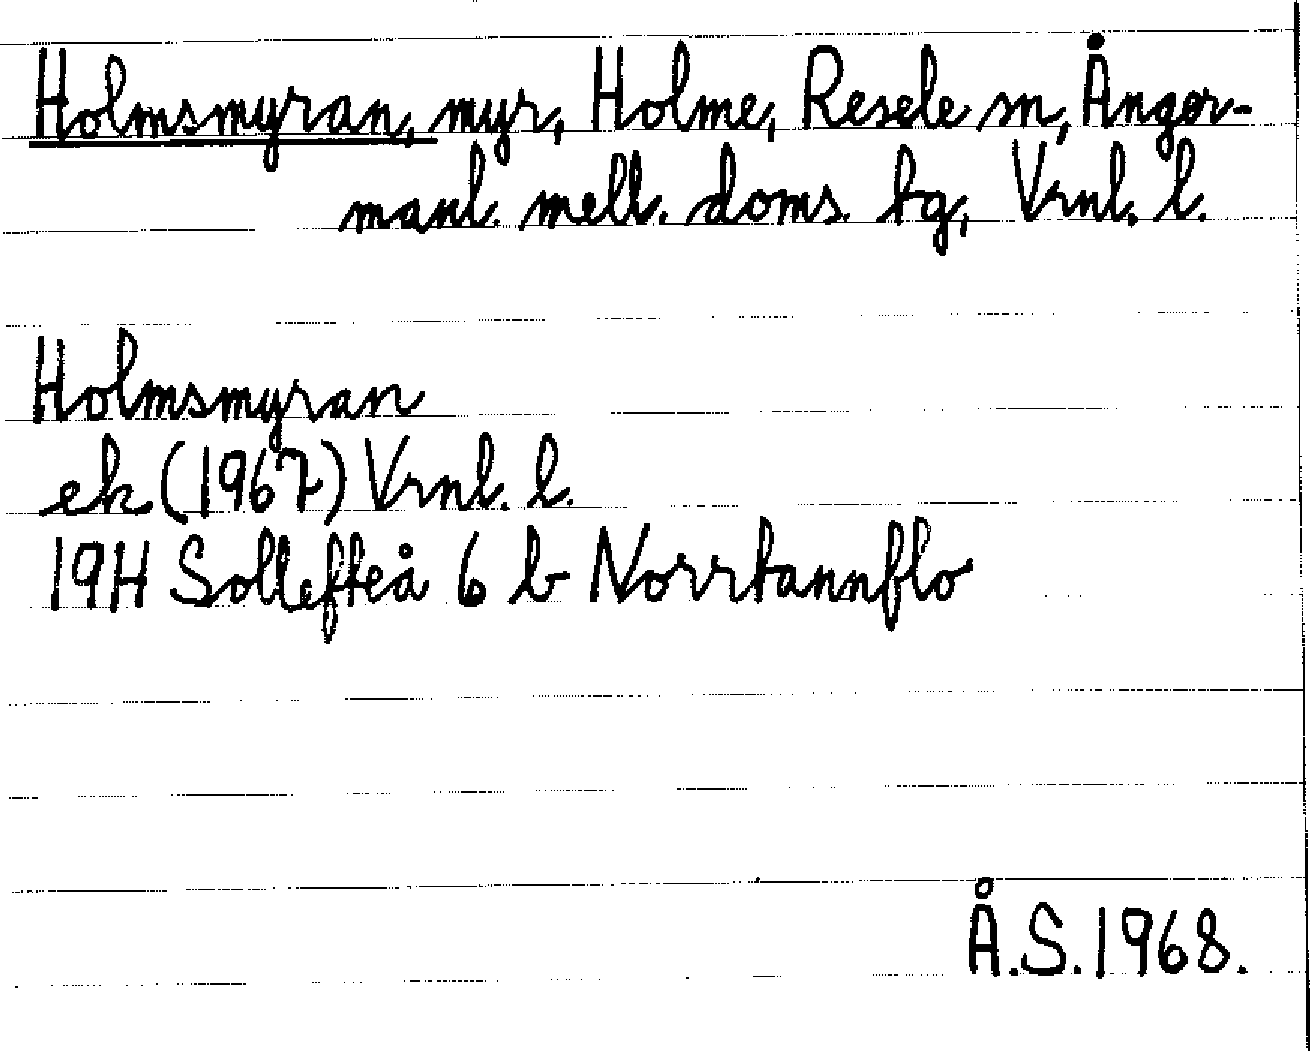 Holmsmyran, myr, Holme, Resele sn, Ånger-
manl. mell. doms. tg, Vrnl. l.
Holmsmyran
ek (1967) Vrnl. l.
19H Sollefteå 6 b Norrtannflo
Å.S. 1968.